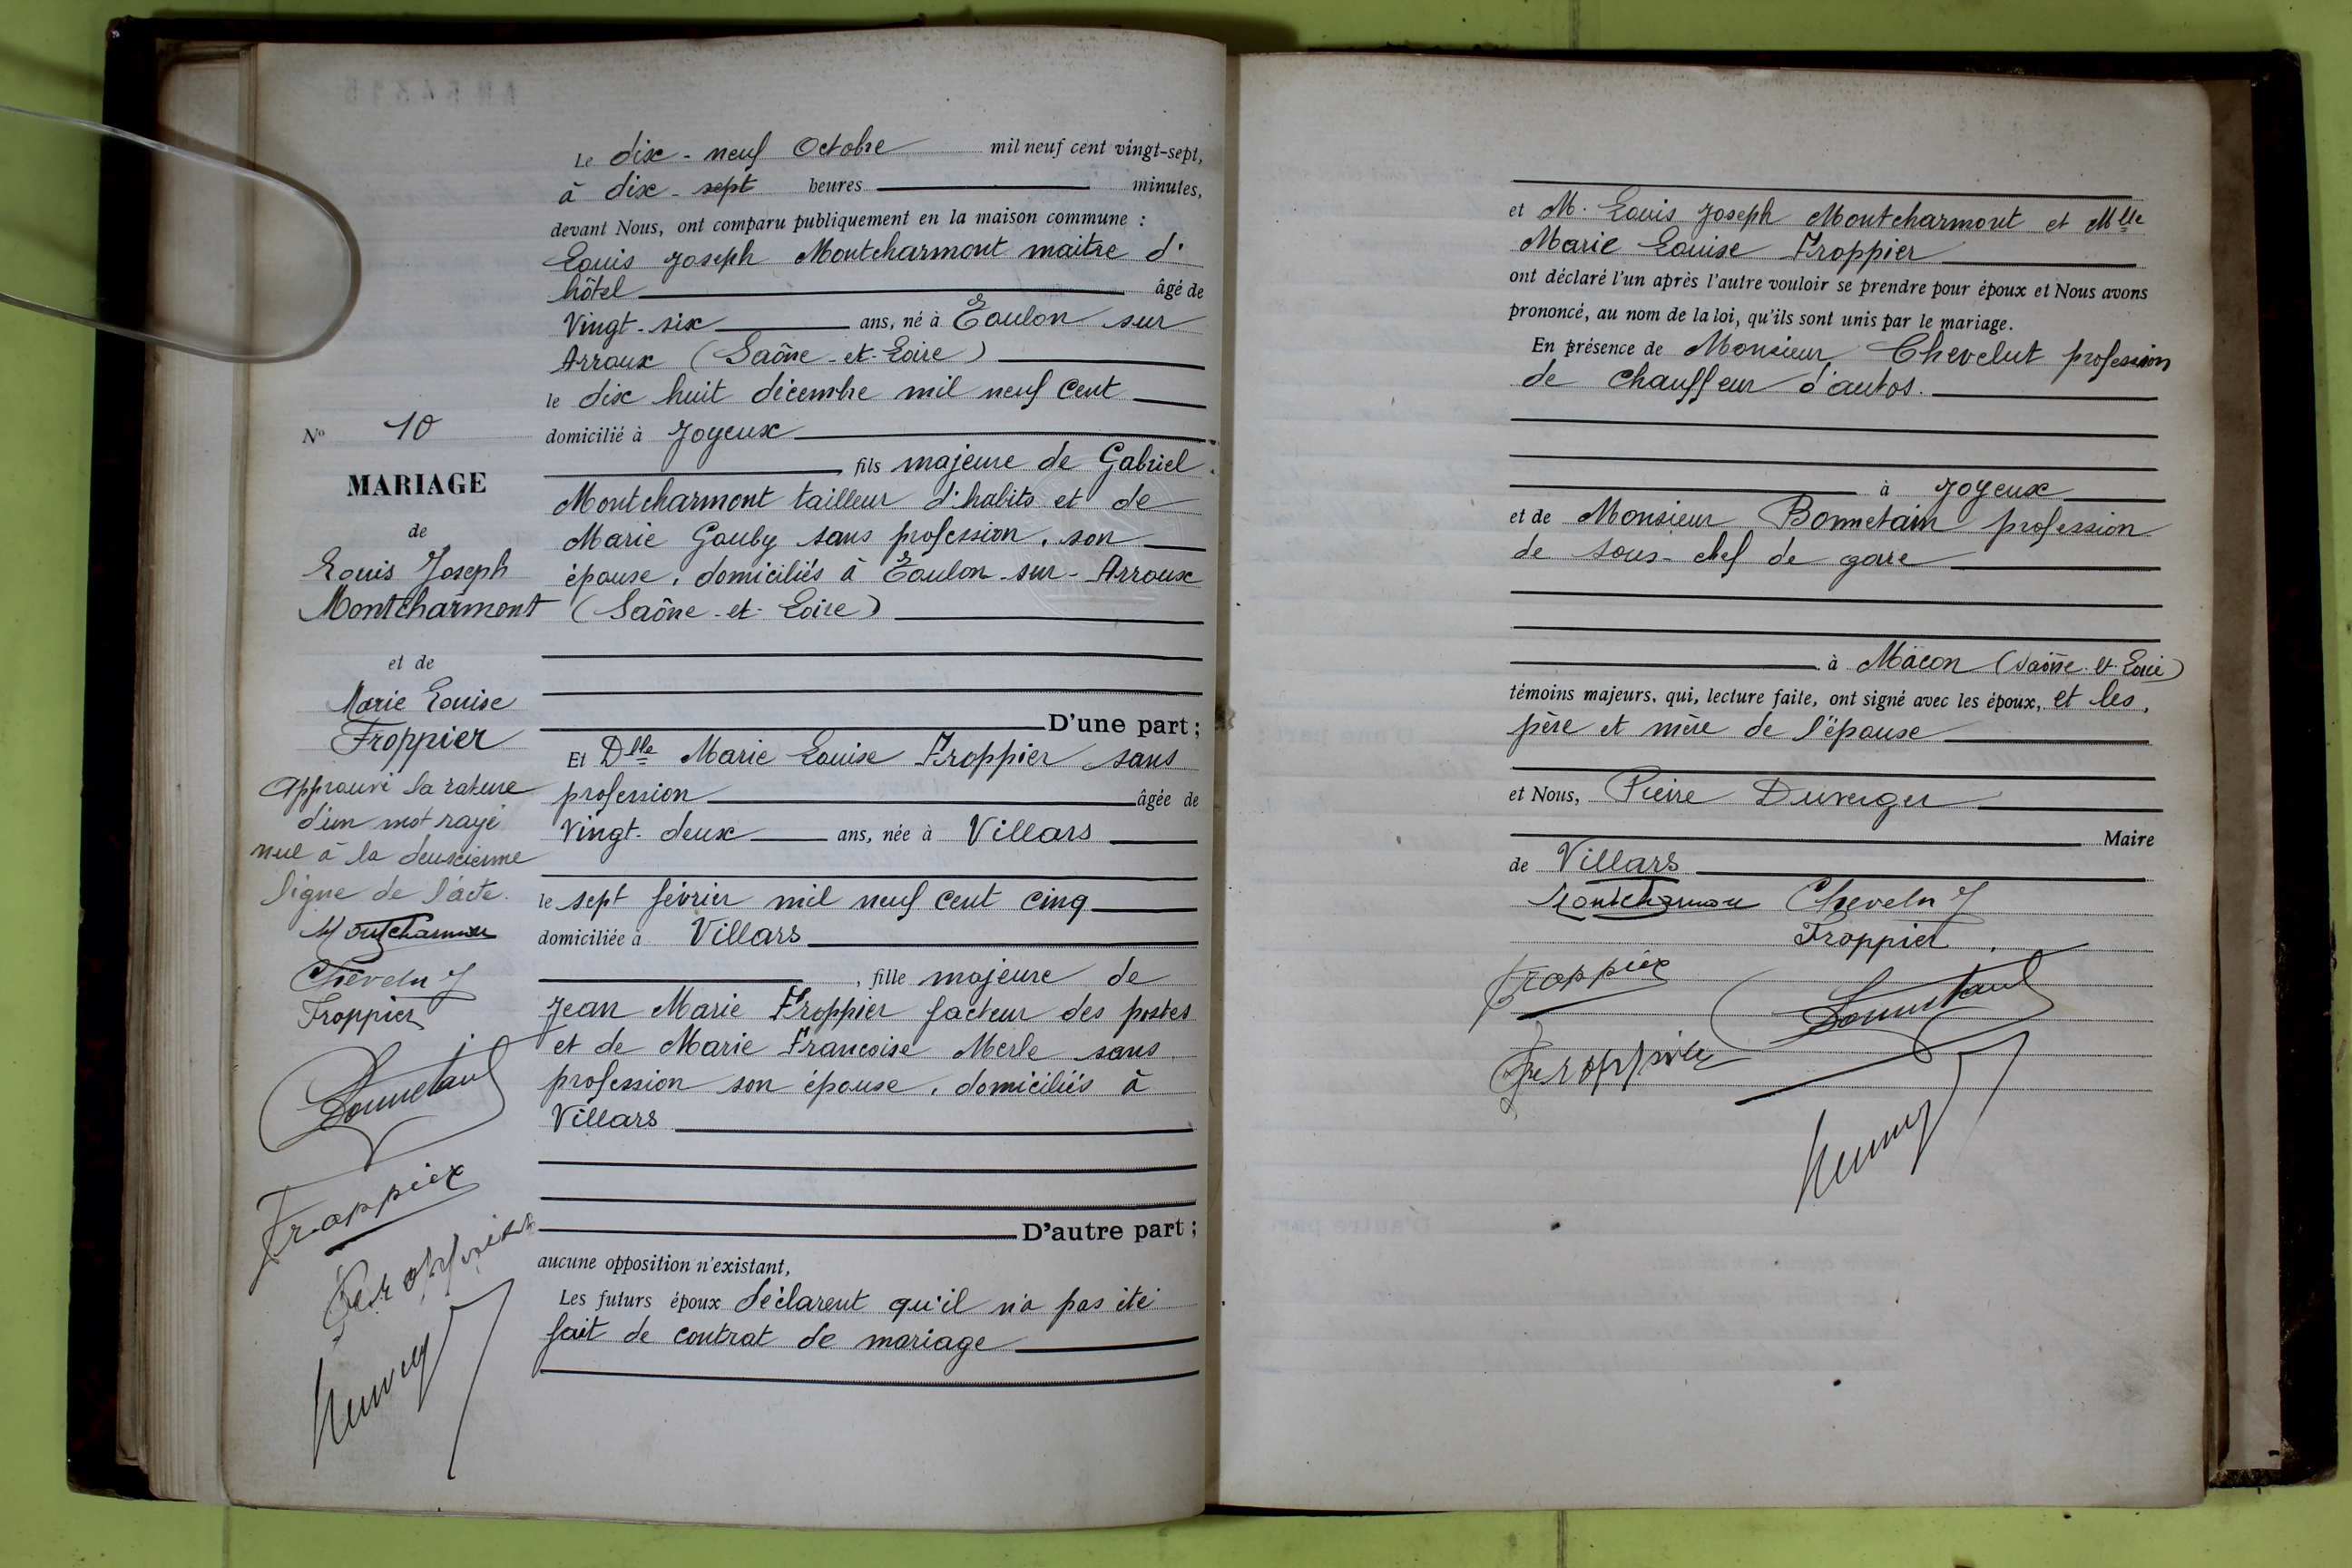 Le dix-neuf Octobre mil neuf cent vingt-sept,
à dix-sept heures minutes,
devant Nous, ont comparu publiquement en la maison commune :
Louis Joseph Montcharmont maitre d'
hôtel âgé de
Vingt-six ans, né à Toulon sur
Arroux (Saône-et-Loire)
le dix huit décembre mil neuf cent
domicilié à Joyeux
fils majeure de Gabriel
Montcharmont tailleur d'habits et de
Marie Gauby sans profession, son
épouse, domiciliés à Toulon-sur-Arroux
(Saône-et-Loire)
D'une part ;
Et Dlle Marie Louise Froppier sans
profession âgée de
Vingt-deux ans, née à Villars
le sept février mil neuf cent cinq
domiciliée à Villars
, fille majeure de
Jean Marie Froppier facteur des postes
et de Marie Françoise Merle sans
profession son épouse, domiciliés à
Villars
D'autre part ;
aucune opposition n'existant,
Les futurs époux déclarent qu'il n'a pas été
fait de contrat de mariage
No 10
MARIAGE
de
Louis Joseph
Montcharmont
et de
Marie Louise
Froppier
Approuvé la rature
d'un mot rayé
nul à la deuxième
ligne de l'acte.
Montcharmon
Chevelu J
Froppier
Bonnetain
Froppier
Froppier
et M. Louis Joseph Montcharmont et Mlle
Marie Louise Froppier
ont déclaré l'un après l'autre vouloir se prendre pour époux et Nous avons
prononcé, au nom de la loi, qu'ils sont unis par le mariage.
En présence de Monsieur Chevelut profession
de chauffeur d'autos.
à Joyeux
et de Monsieur Bonnetain profession
de sous-chef de gare
à Mâcon (Saône-et-Loire)
témoins majeurs, qui, lecture faite, ont signé avec les époux, et les,
père et mère de l'épouse
et Nous, Pierre Duverger
Maire
de Villars
Montcharmon Chevelu J
Froppier
Froppier
Bonnetain
Froppier